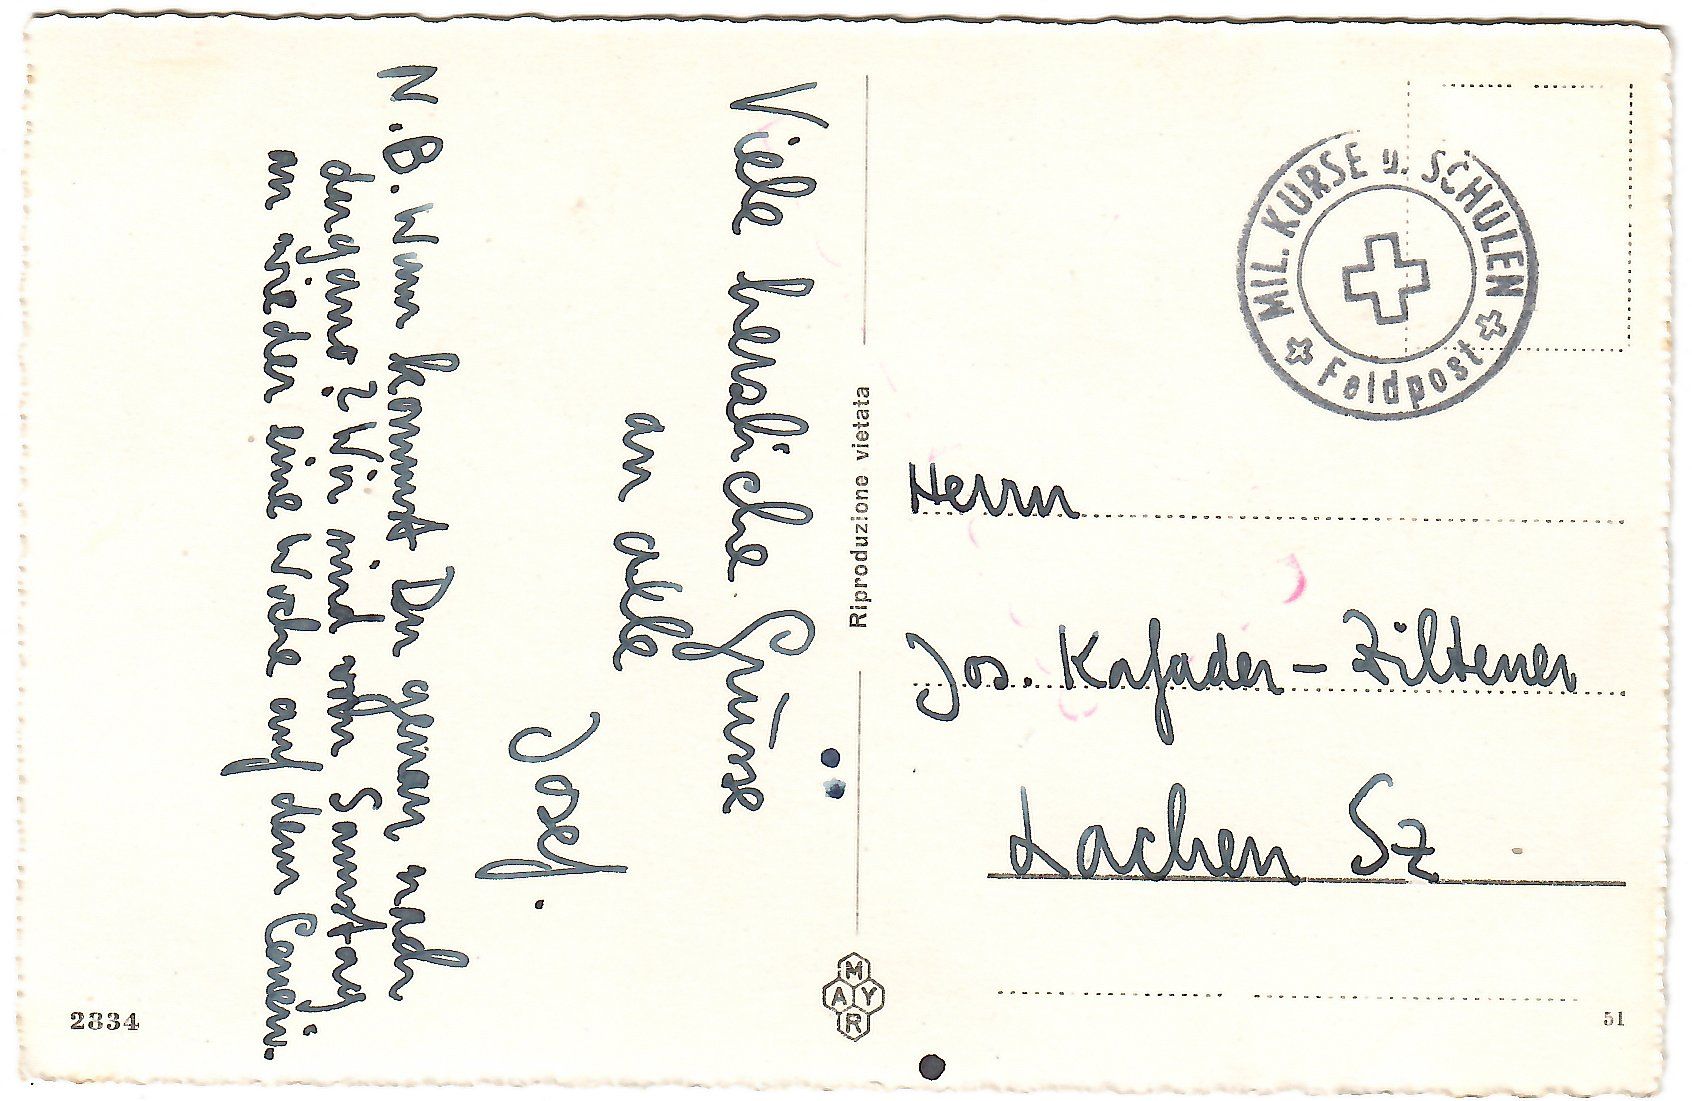 Viele herzliche Grüsse
an alle
Josef.
N.B. Wann kommt Der genau nach
? Wir sind vom Samstag
an wieder eine Woche auf dem Ceneri.
Riproduzione vietata
MIL. KURSE u. SCHULEN
Feldpost
Herrn
Jos. Krfader - Ziltener
Lachen Sz
MAYR
2834
51